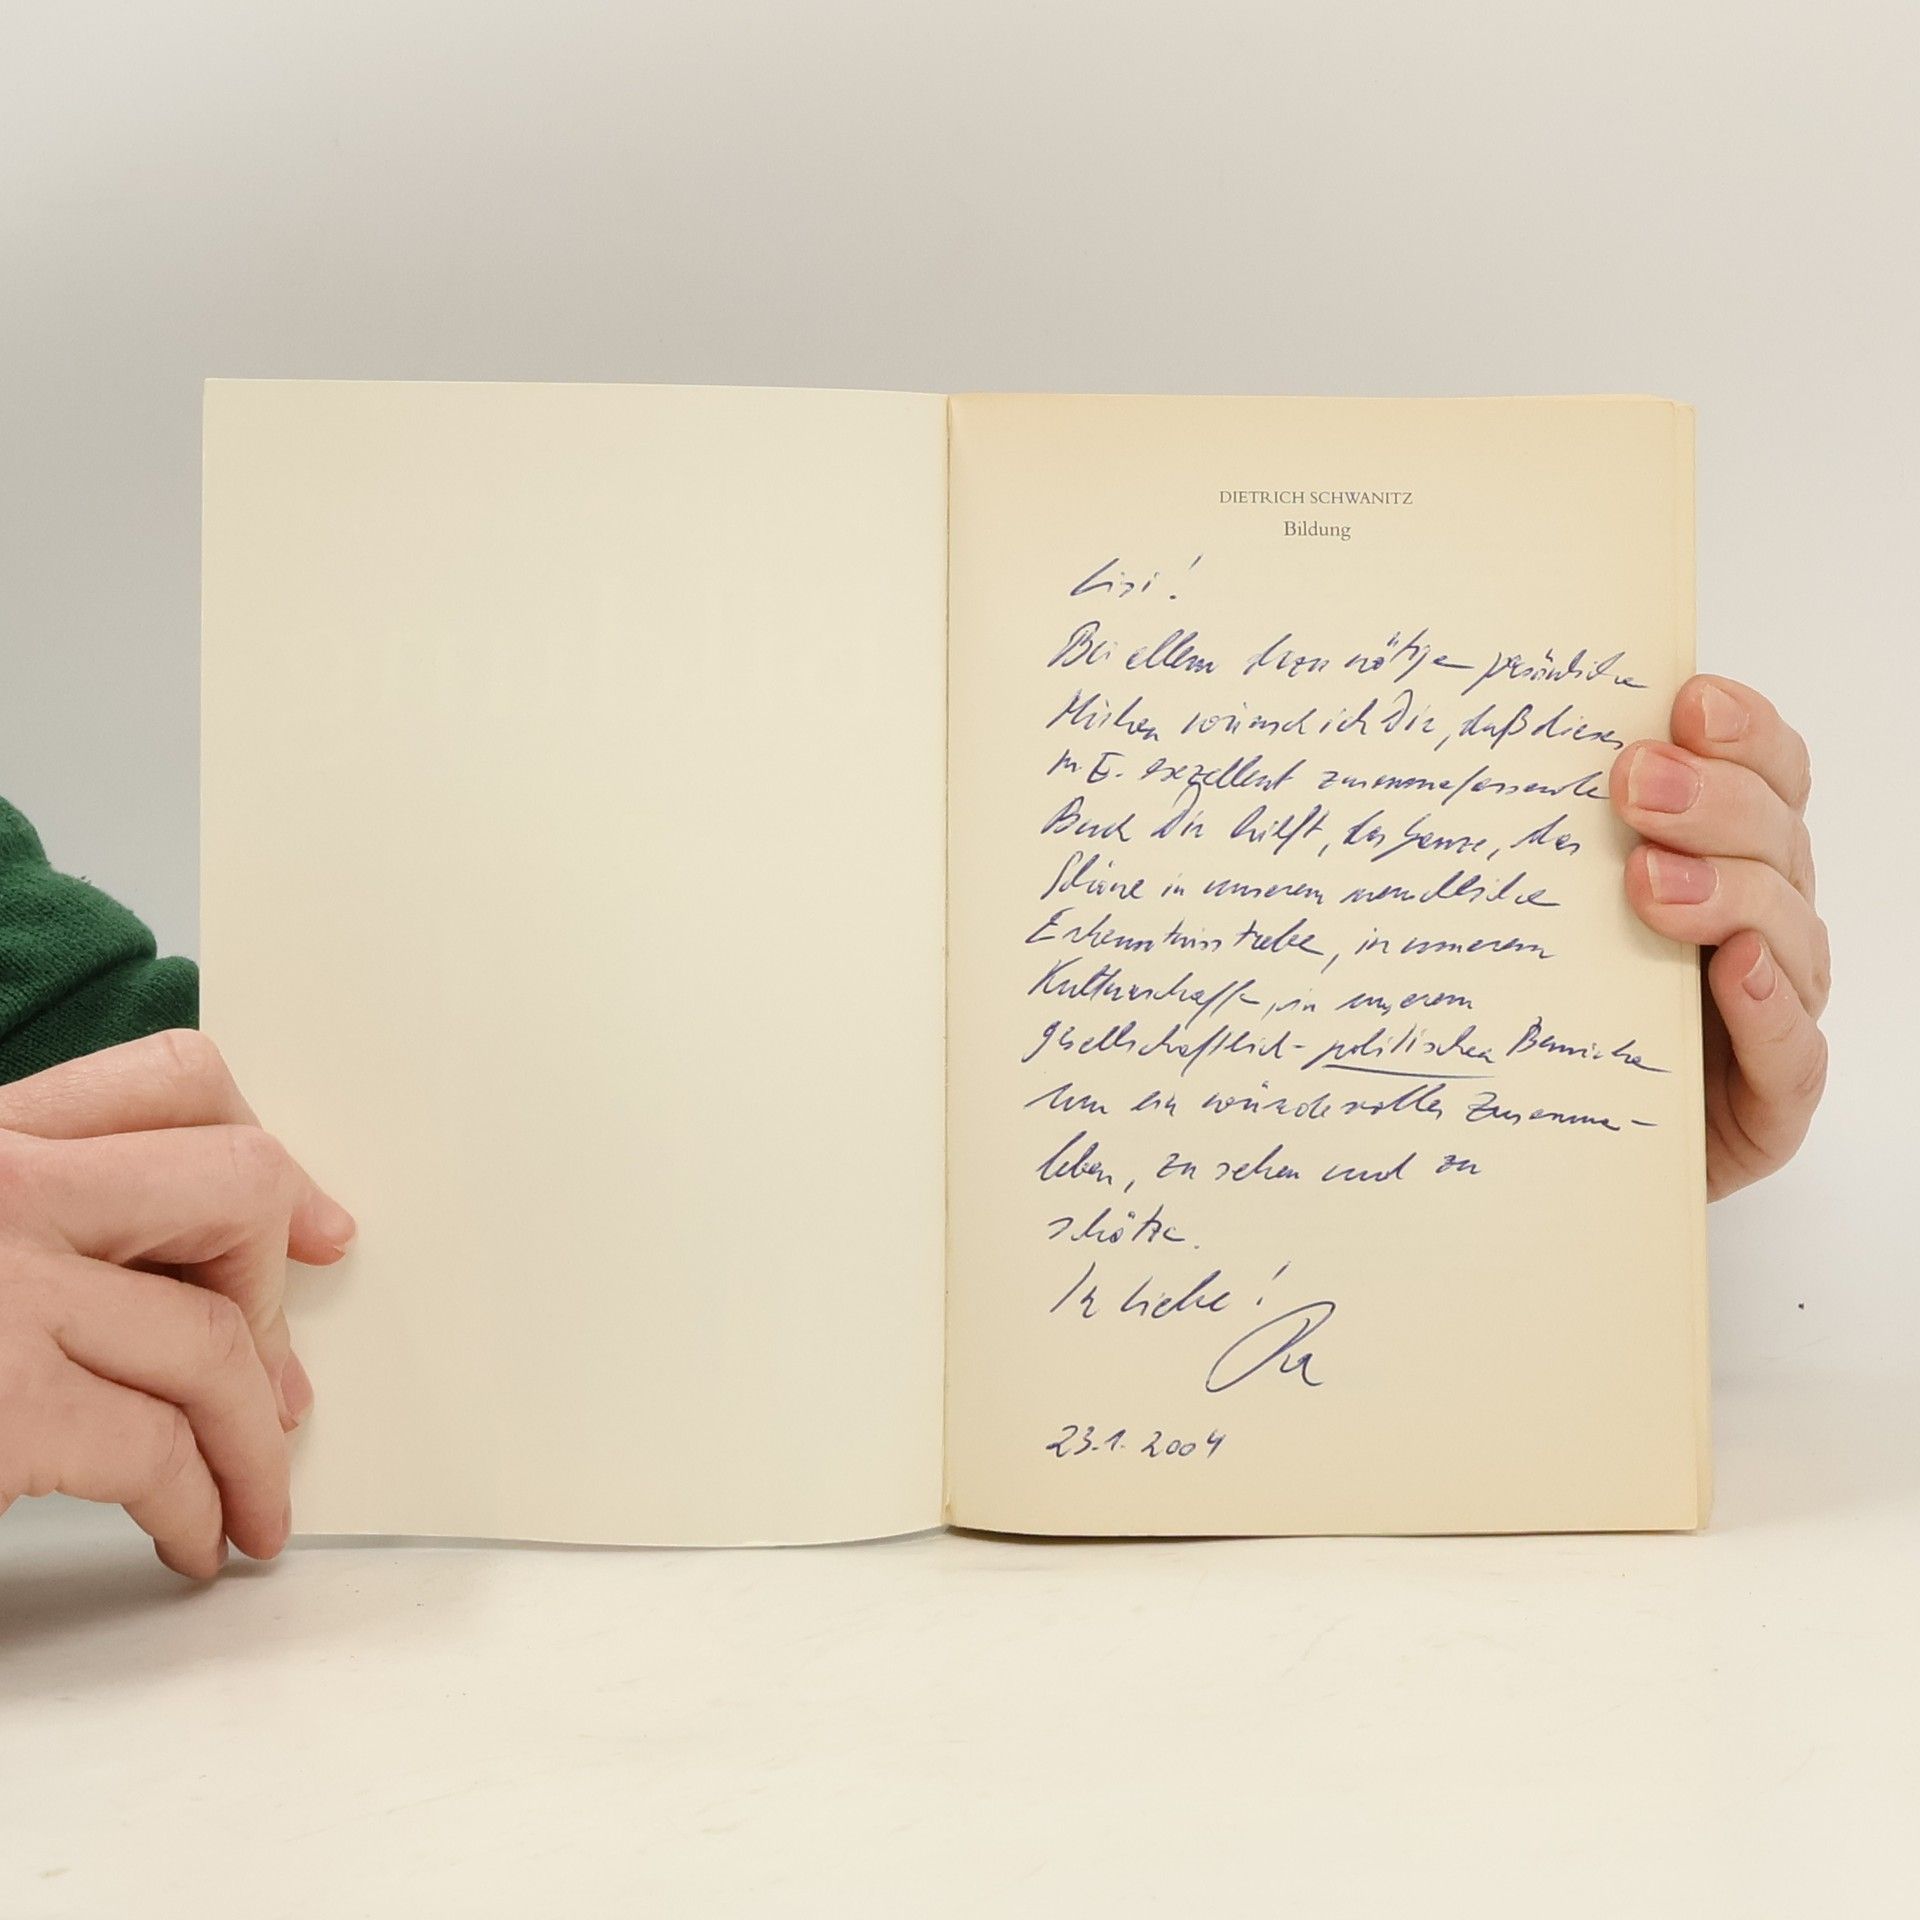 DIETRICH SCHWANITZ
Bildung
Lisi!
Bei allem dazu nötigen persönlichen
Mühen wünsch ich Dir, daß dieses
m. E. exzellent zusammenfassende
Buch Dir hilft, das Ganze, das
Schöne in unserem menschlichen
Erkenntnisstreben, in unserem
Kulturschaffen, in unserem
gesellschaftlich-politischen Bemühen
um ein würdevolles Zusammen-
leben, zu sehen und zu
schätzen.
In Liebe!
23.1.2004